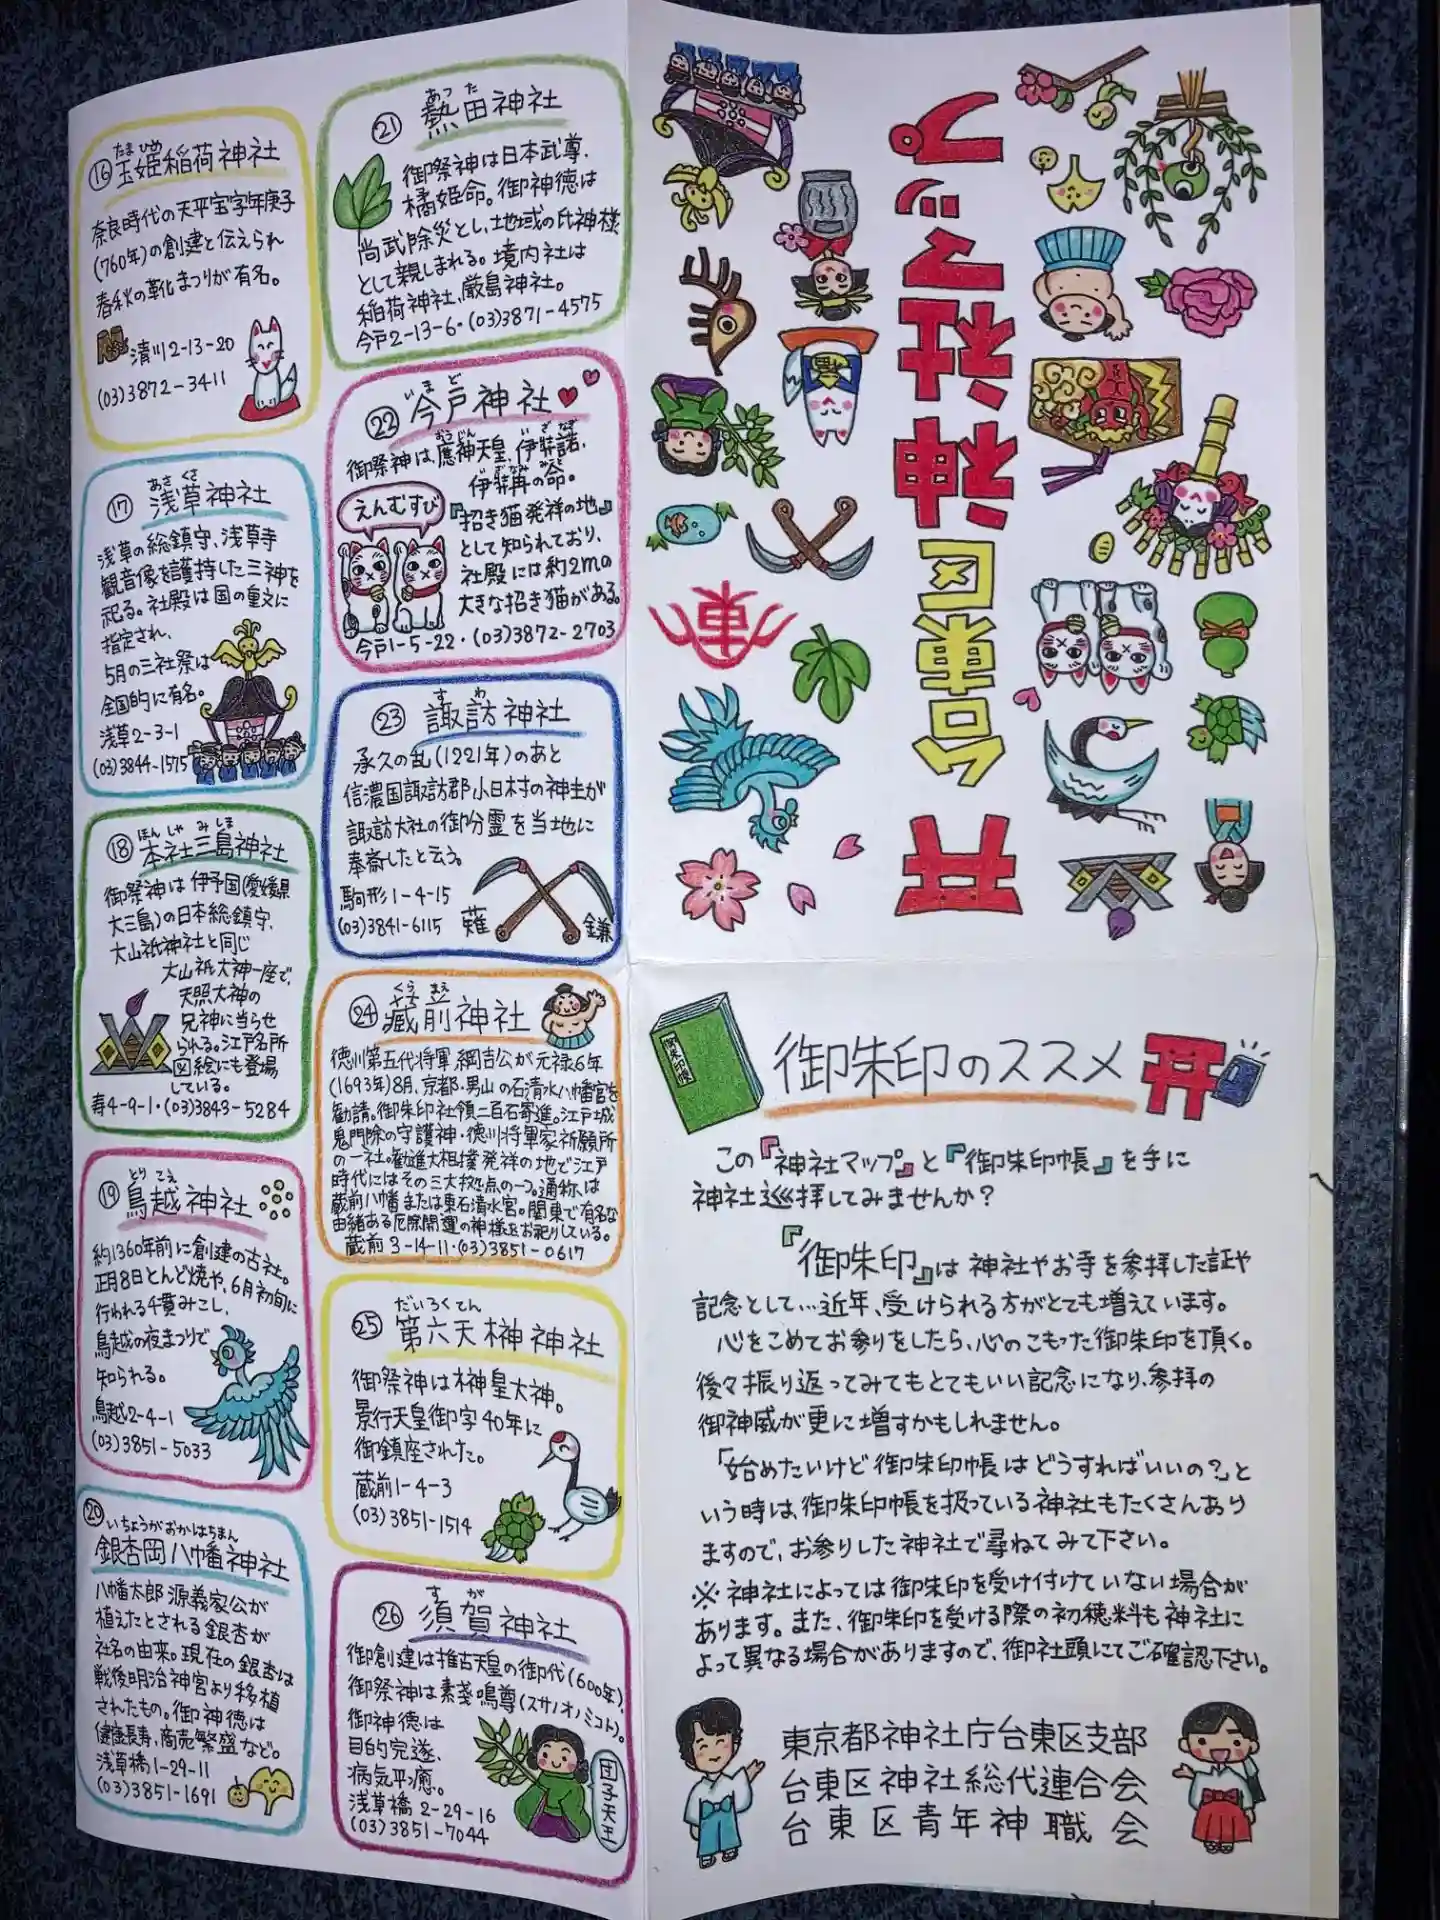 ⑯ 玉姫稲荷神社
たまひめ
奈良時代の天平宝字年庚子
(760年)の創建と伝えられ
春秋の靴まつりが有名。
清川2-13-20
(03)3872-3411
⑰ 浅草神社
あさくさ
浅草の総鎮守、浅草寺
観音像を護持した三神を
祀る。社殿は国の重文に
指定され、
5月の三社祭は
全国的に有名。
浅草2-3-1
(03)3844-1575
⑱ 本社三島神社
ほんしゃみしま
御祭神は伊予国(愛媛県
大三島)の日本総鎮守、
大山祇神社と同じ
大山祇大神一座で、
天照大神の
兄神に当らせ
られる。江戸名所
図絵にも登場
している。
寿4-9-1・(03)3843-5284
⑲ 鳥越神社
とりこえ
約1360年前に創建の古社。
正月8日とんど焼や、6月初旬に
行われる千貫みこし、
鳥越の夜まつりで
知られる。
鳥越2-4-1
(03)3851-5033
⑳ 銀杏岡八幡神社
いちょうがおかはちまん
八幡太郎源義家公が
植えたとされる銀杏が
社名の由来。現在の銀杏は
戦後明治神宮より移植
されたもの。御神徳は
健康長寿、商売繁盛など。
浅草橋1-29-11
(03)3851-1691
㉑ 熱田神社
あつた
御祭神は日本武尊、
橘姫命。御神徳は
尚武除災とし、地域の氏神様
として親しまれる。境内社は
稲荷神社、厳島神社。
今戸2-13-6・(03)3871-4575
㉒ 今戸神社
いまど
御祭神は、應神天皇、伊弉諾、
おうじん いざなぎ
伊弉冉の命。
いざなみ みこと
えんむすび
『招き猫発祥の地』
として知られており、
社殿には約2mの
大きな招き猫がある。
今戸1-5-22・(03)3872-2703
㉓ 諏訪神社
すわ
承久の乱(1221年)のあと
信濃国諏訪郡小日村の神主が
諏訪大社の御分霊を当地に
奉斎したと云う。
駒形1-4-15
(03)3841-6115
薙
鎌
㉔ 蔵前神社
くらまえ
徳川第五代将軍綱吉公が元禄6年
(1693年)8月、京都・男山の石清水八幡宮を
勧請。御朱印社領二百石寄進。江戸城
鬼門除の守護神・徳川将軍家祈願所
の一社。勧進大相撲発祥の地で江戸
時代にはその三大拠点の一つ。通称は
蔵前八幡または東石清水宮。関東で有名な
由緒ある厄除開運の神様をお祀りしている。
蔵前3-14-11・(03)3851-0617
㉕ 第六天榊神社
だいろくてん
御祭神は榊皇大神。
景行天皇御宇40年に
御鎮座された。
蔵前1-4-3
(03)3851-1514
㉖ 須賀神社
すが
御創建は推古天皇の御代(600年)、
御祭神は素戔鳴尊(スサノオノミコト)。
御神徳は
目的完遂、
病気平癒。
浅草橋2-29-16
(03)3851-7044
団子天王
台東区神社マップ
御朱印帳
御朱印のススメ
この『神社マップ』と『御朱印帳』を手に
神社巡拝してみませんか？
『御朱印』は神社やお寺を参拝した証や
記念として…近年、受けられる方がとても増えています。
心をこめてお参りをしたら、心のこもった御朱印を頂く。
後々振り返ってみてもとてもいい記念になり、参拝の
御神威が更に増すかもしれません。
「始めたいけど御朱印帳はどうすればいいの？」と
いう時は、御朱印帳を扱っている神社もたくさんあり
ますので、お参りした神社で尋ねてみて下さい。
※神社によっては御朱印を受け付けていない場合が
あります。また、御朱印を受ける際の初穂料も神社に
よって異なる場合がありますので、御社頭にてご確認下さい。
東京都神社庁台東区支部
台東区神社総代連合会
台東区青年神職会